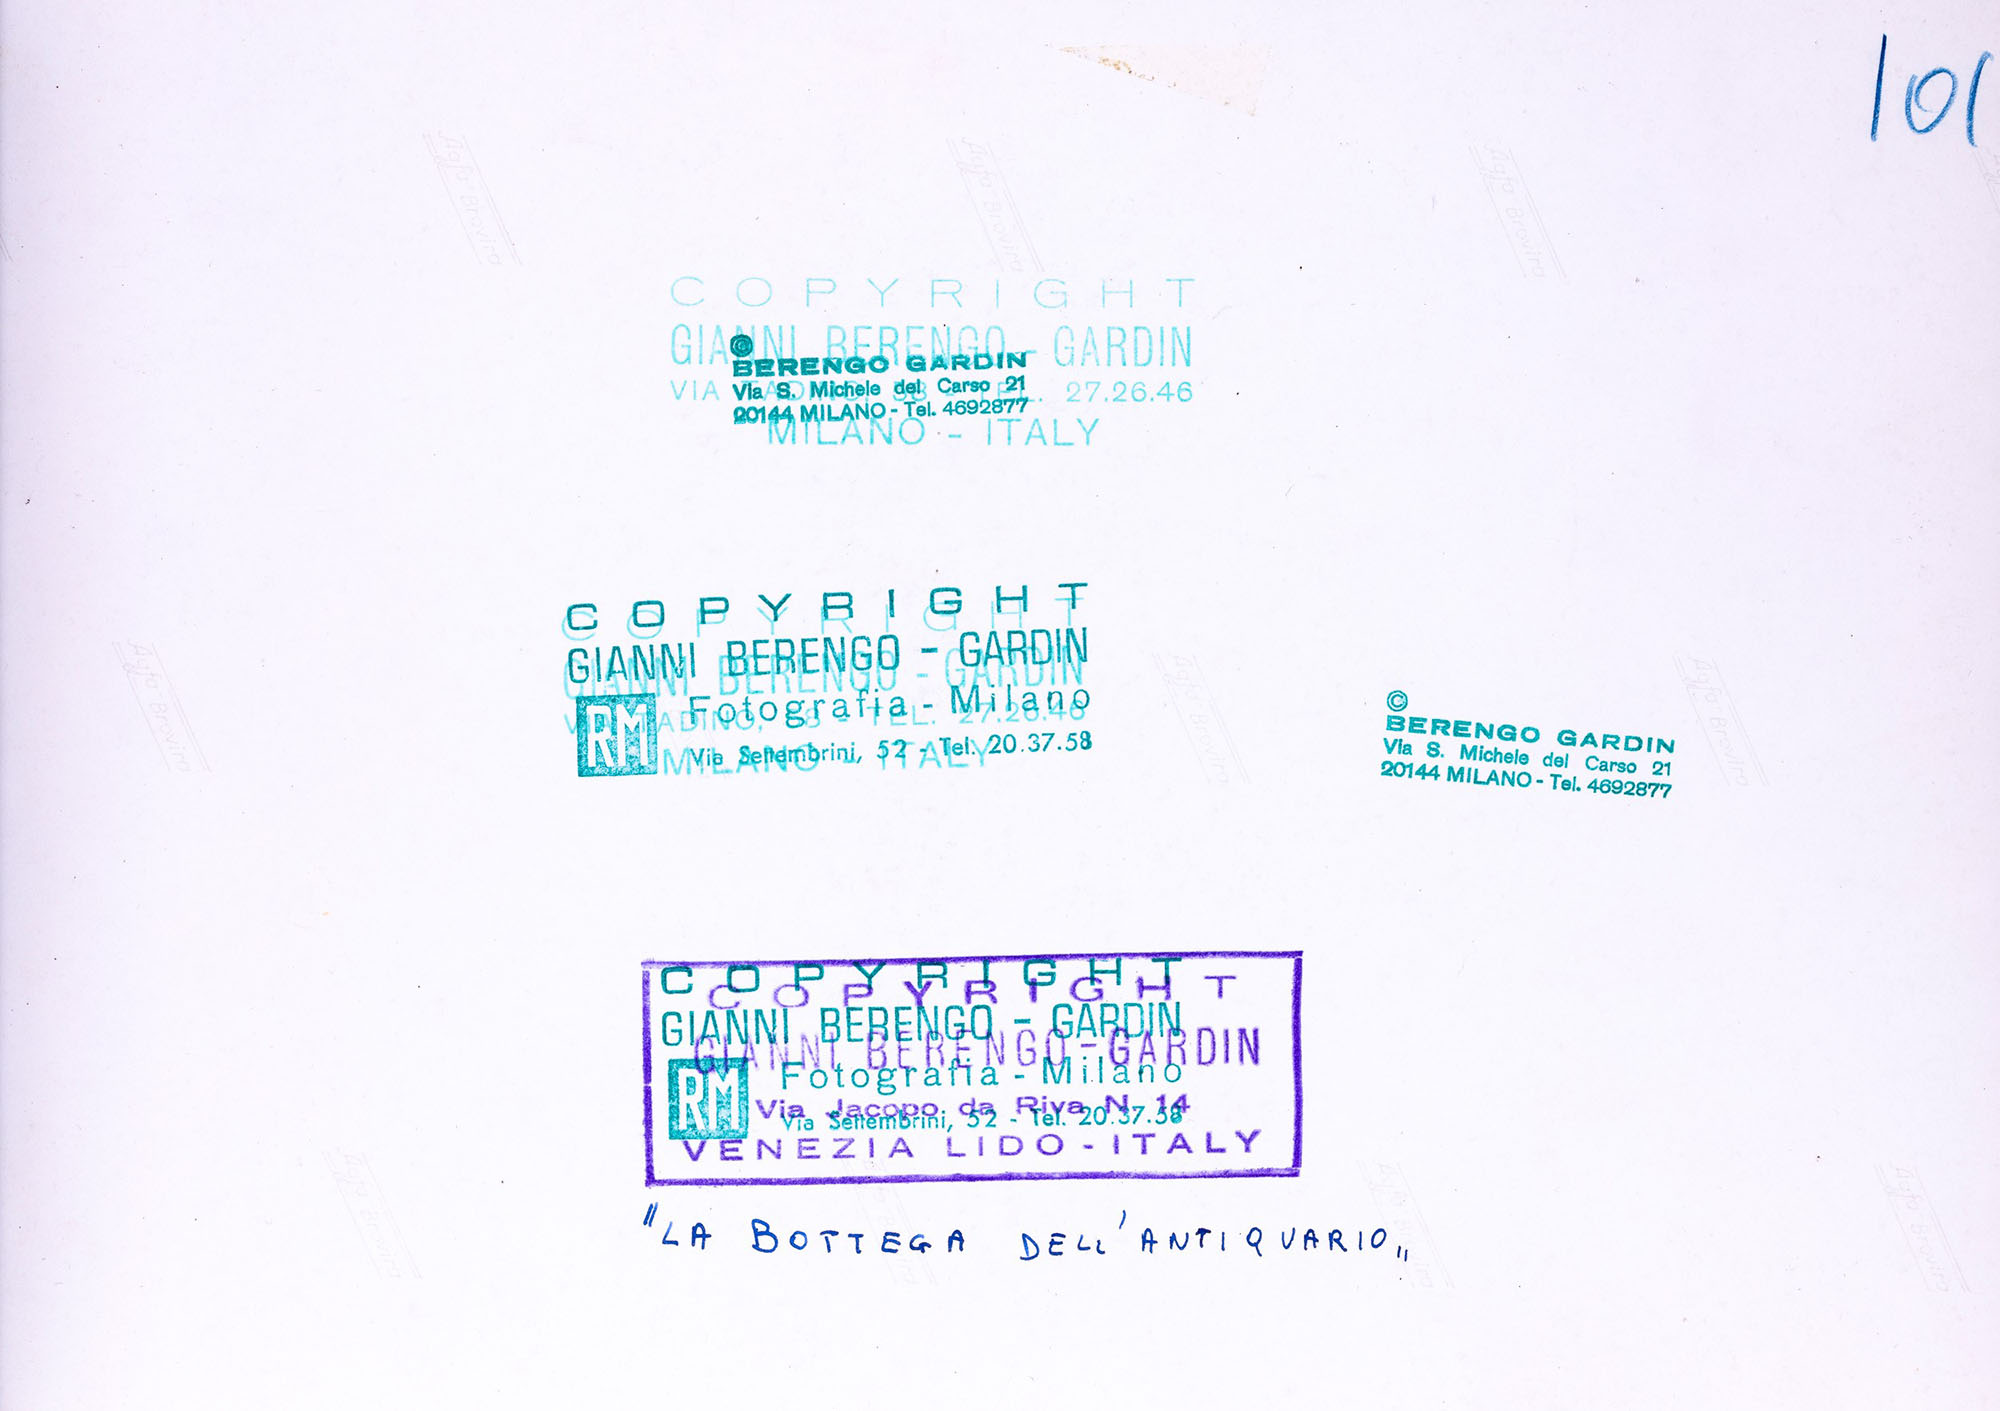 101
COPYRIGHT
GIANNI BERENGO - GARDIN
VIA TADINO, 58 - TEL. 27.26.46
MILANO - ITALY
©
BERENGO GARDIN
Via S. Michele del Carso 21
20144 MILANO - Tel. 4692877
COPYRIGHT
GIANNI BERENGO - GARDIN
RM Fotografia - Milano
Via Settembrini, 52 - Tel. 20.37.58
COPYRIGHT
GIANNI BERENGO - GARDIN
VIA TADINO, 58 - TEL. 27.26.46
MILANO - ITALY
©
BERENGO GARDIN
Via S. Michele del Carso 21
20144 MILANO - Tel. 4692877
COPYRIGHT
GIANNI BERENGO - GARDIN
RM Fotografia - Milano
Via Settembrini, 52 - Tel. 20.37.58
COPYRIGHT
GIANNI BERENGO - GARDIN
Via Jacopo da Riva N. 14
VENEZIA LIDO - ITALY
"LA BOTTEGA DELL'ANTIQUARIO„
Agfa Brovira
Agfa Brovira
Agfa Brovira
Agfa Brovira
Agfa Brovira
Agfa Brovira
Agfa Brovira
Agfa Brovira
Agfa Brovira